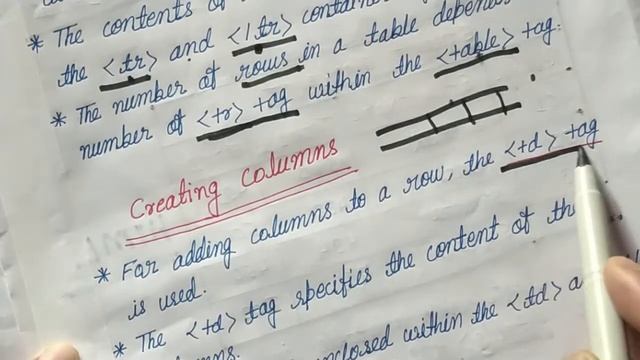 * The contents of
the <tr> and </tr> contain
* The number of rows in a table depends
number of <tr> tag within the <table> tag.
Creating columns
* For adding columns to a row, the <td> tag
is used.
* The <td> tag specifies the content of the
enclosed within the <td> a